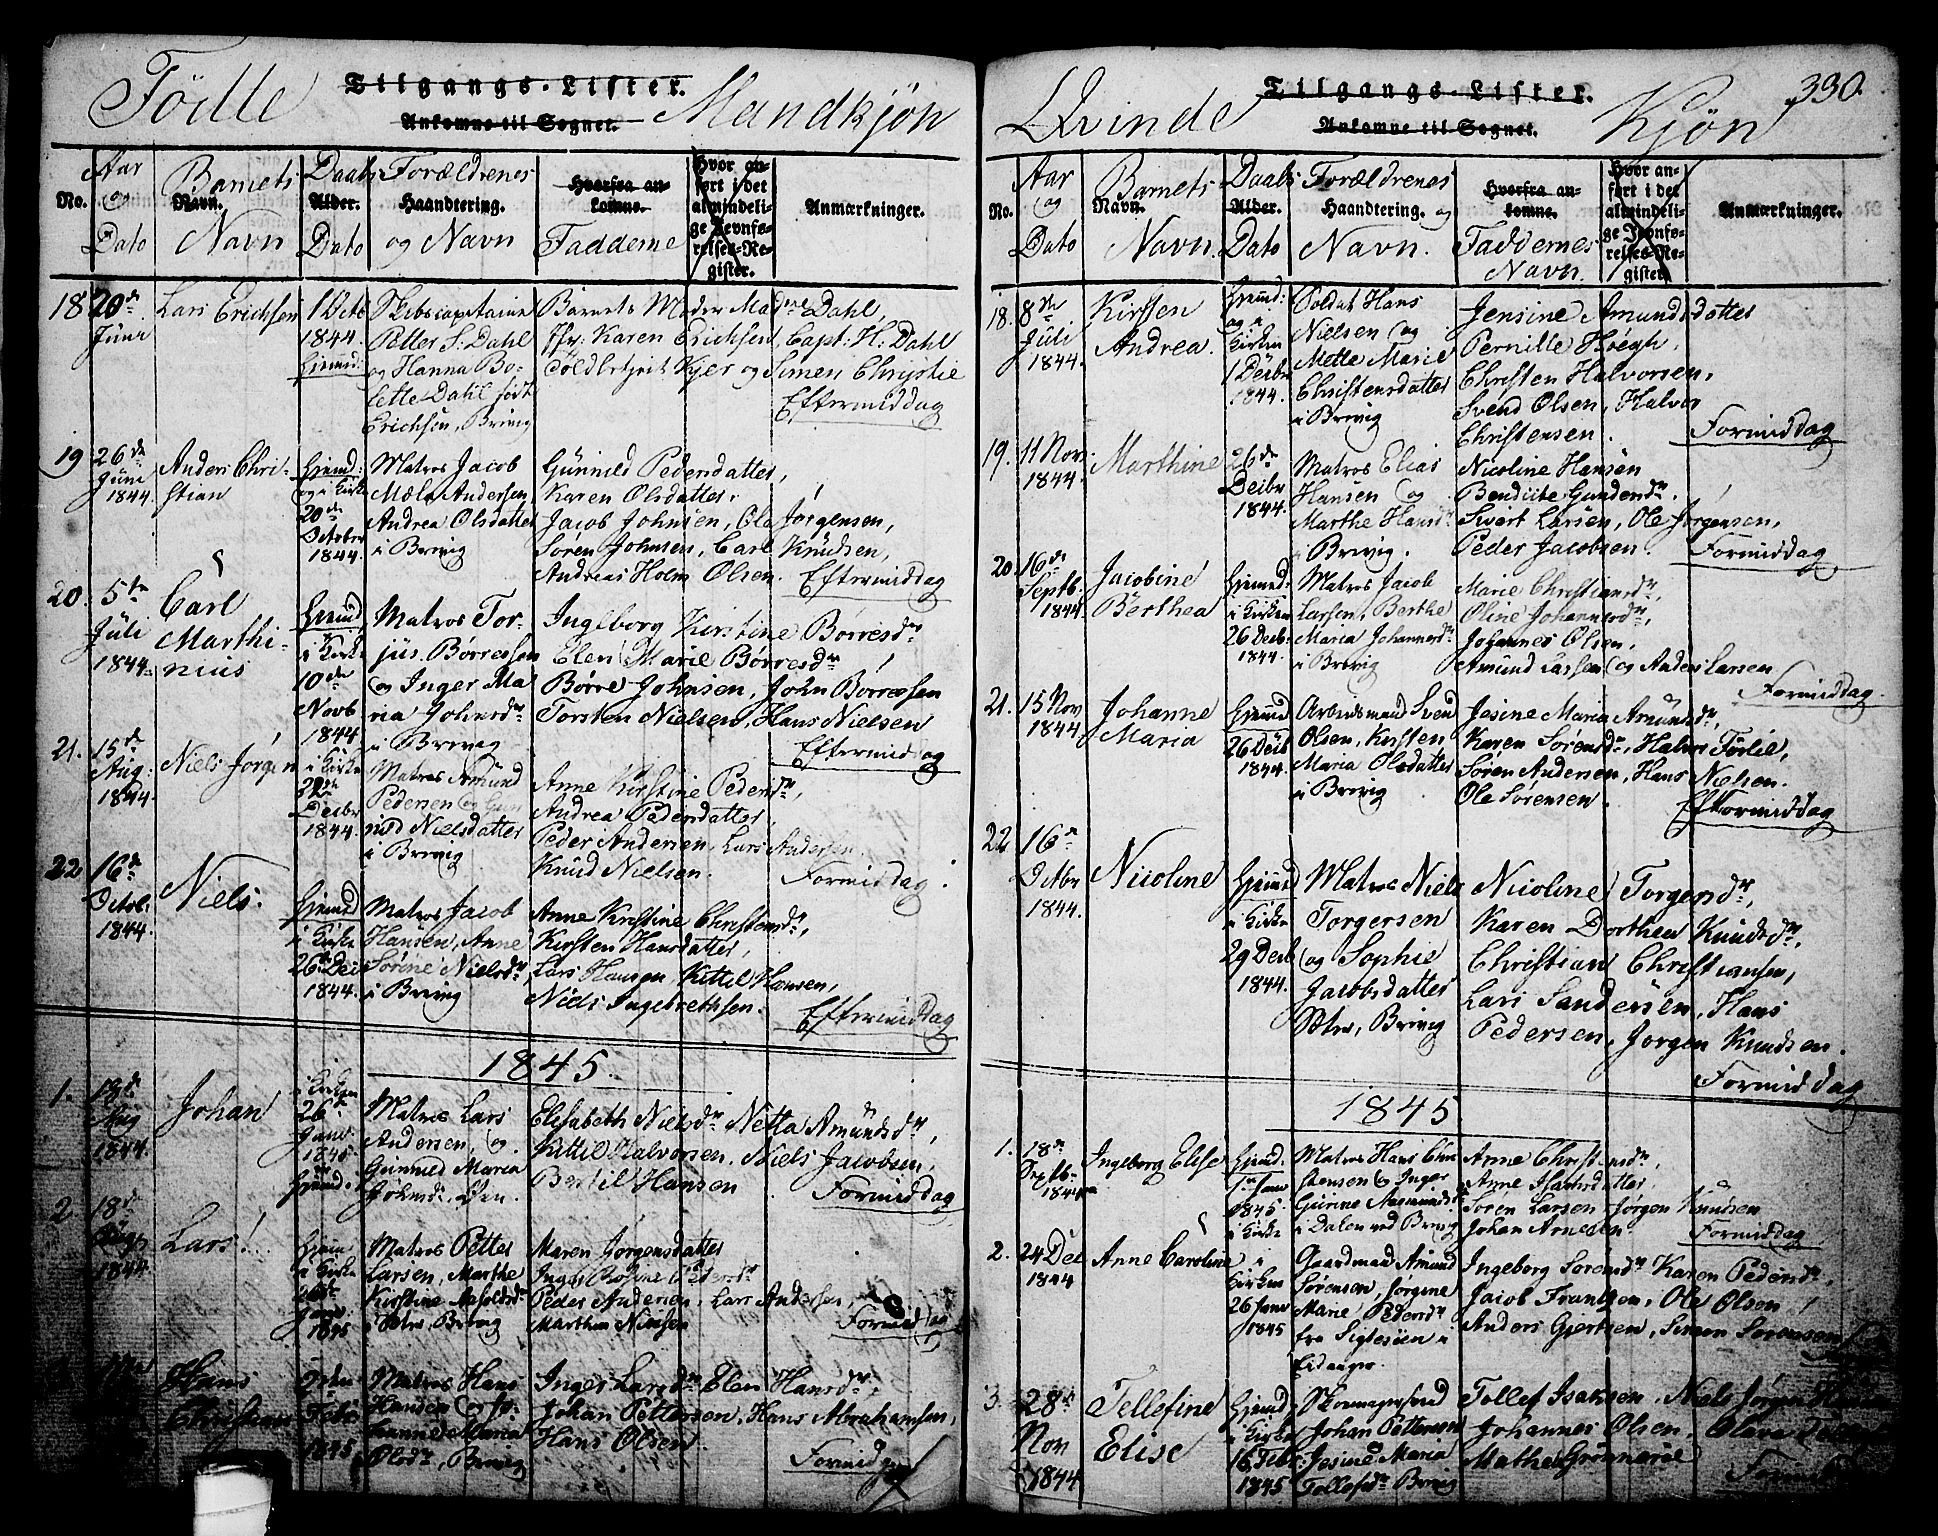 Födte Tilgangs-Lister. Mandkjøn
Ankomne til Sognet.
No. Aar og Dato
Barnets Navn. Navn
Daabs Alder. Dato
Forældrenes Haandtering. og Navn
Hvorfra ankomne. Fadderne
Hvor anført i det almindelige Jevnførelses-Register.
Anmærkninger.
18 20de Juni
Lars Erichsen
1 Octb 1844. Hjemd:
Skibscapitaine
Petter S. Dahl
og Hanna Bo-
lette Dahl født
Erichsen, Brevig
Barnets Moder Madme Dahl,
Jfr. Karen Erichsen, Capt: H. Dahl
Kjer og Simen Christie
Eftermiddag
19 26de Juni 1844.
Anders Chri-
stian
Hjemd: og i Kirke
20de October 1844.
Matros Jacob
Andersen,
Andrea Olsdatter
i Brevig
Gunnild Pedersdatter
Karen Olsdatter,
Jacob Johnsen, Ola Jörgensen,
Sören Johnsen, Carl Knudsen,
Andreas Holm Olsen. Eftermiddag
20. 5te Juli 1844.
Carl
Marthi-
nius
Hjemd i Kirke
10de Novb 1844
Matros Tor-
jus Börresen
og Inger Ma
ria Johnsdr
i Brevig
Ingeborg Kirstine Börresdr
Elen Marie Börresdr
Börre Johnsen, John Börresen
Torsten Nielsen, Hans Nielsen
Eftermiddag
21. 15de Aug: 1844.
Niels Jörgen
i Kirke
22de Decbr 1844.
Matros Amund
Pedersen og Gun
nild Nielsdatter
i Brevig
Anne Kirstine Pedersdr,
Andrea Pedersdatter
Peder Andersen, Lars Andersen.
Knud Nielsen. Formiddag.
22 16de Octob. 1844.
Niels.
Hjemd i Kirke
26de Dec 1844.
Matros Jacob
Hansen, Anne
Sörine Nielsdr
i Brevig
Anne Kirstine Christensdr,
Kirsten Hansdatter,
Lars Hansen, Kittil Hansen,
Niels Ingebrethsen.
Eftermiddag
1845.
1. 18de Aug 1844.
Johan
i Kirken
26de Janv. 1845
Hjemd.
Matros Lars
Andersen, og
Gunnild Maria
Elisabeth Nielsdr Netta Amundsdr,
Kittil Halvorsen, Niels Jacobsen,
Bertil Hansen
Formiddag
2 18de Aug 1844
Lars!
Hjem i Kirke
26de Janv. 1845
Matros Petter
Larsen, Marthe
Kirstine
Brevig
Maren Jörgensdatter
Inger Pedersdr
Peder Andersen, Lars Andersen,
Marthin Nielsen
Formiddag
Hans
Christian
Febr 1845
Matros Hans
Hansen og Jo-
hanne Maria
Olsdr, Brevig
Inger Larsdr Elen Hansdr,
Johan Pettersen, Hans Abrahamsen,
Hans Olsen.
Formiddag
Qvinde Tilgangs-Lister. Kjøn 330.
Ankomne til Sognet.
No. Aar og Dato
Barnets Navn. Navn.
Daabs Alder. Dato
Forældrenes Haandtering. og Navn.
Hvorfra ankomne. Faddernes Navn.
Hvor anført i det almindelige Jevnførelses-Register
Anmærkninger.
18. 8de Juli 1844.
Kirsten
Andrea.
Hjemd: og i Kirken
1 Decbr 1844.
Soldat Hans
Nielsen og
Mette Marie
Christensdatter
i Brevig
Jensine Amundsdatter
Pernille Höegh,
Christen Halvorsen,
Svend Olsen, Halvor
Christensen.
Formiddag
19. 11 Nov. 1844.
Marthine
26de Decbr 1844.
Matros Elias
Hansen og
Marthe Hansdr
i Brevig.
Nicoline Hansen
Bendicte Gundersdr.
Sivert Larsen, Ole Jörgensen,
Peder Jacobsen. Formiddag
20. 16de Septb. 1844
Jacobine
Berthea
Hjemd. i Kirken
26 Decbr 1844.
Matros Jacob
Larsen, Berthe
Maria Johannesdr
i Brevig
Marie Christiansdr,
Oline Johannesdr,
Johannes Olsen,
Amund Larsen og Anders Larsen
Formiddag.
21. 15 Nov 1844.
Johanne
Maria
Hjemd
26 Decb 1844.
Arbeidsmand Svend
Olsen, Kirsten
Maria Olsdatter
i Brevig
Jesine Maria Amundsdr,
Karen Sörensdr, Halvor Törlie,
Sören Andersen, Hans Nielsen.
Ole Sörensen.
Eftormiddag
22 16de Octbr 1844.
Nicoline
Hjemd i Kirke
29 Decb 1844.
Matros Niels
Torgersen
og Sophie
Jacobsdatter
Brevig
Nicoline Torgersdr,
Karen Dorthea Knudsdr,
Christian Christiansen,
Lars Sandersen, Hans
Pedersen, Jorgen Knudsen.
Formiddag
1845
1. 18de Septb. 1844
Ingeborg Elise
Hjemd.
1ste Janv 1845 i Kirke
Matros Hans Chri
stensen og Inger
Gurine Aasmundsdr
i Dalen ved Brevig
Anne Christensdr,
Anne Hansdatter,
Sören Larsen Jörgen Knudsen
Johan Arnesen. Formiddag
2. 24 Dec 1844
Anne Caroline
i Kirken
26 Janv 1845
Gaardmand Amund
Sörensen, Jörgine
Marie Pedersdr
fra i
Eidanger.
Ingeborg Sörensdr Karen Pedersdr,
Jacob Frantzen, Ole Olsen
Anders Gjertsen, Simon Sörensen
3. 28de Nov 1844
Tellefine
Elise
Hjemd i Kirke
16 Febr: 1845
Skomagersvend
Johan Pettersen
Jesine Maria
Tollefsdr Brevig
Tollef Isaksen, Niels Jörgen
Johannes Olsen, Olava
Mathe